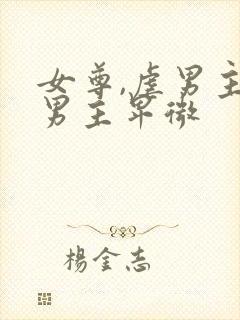 女尊,虐男主
男主卑微
楊金志